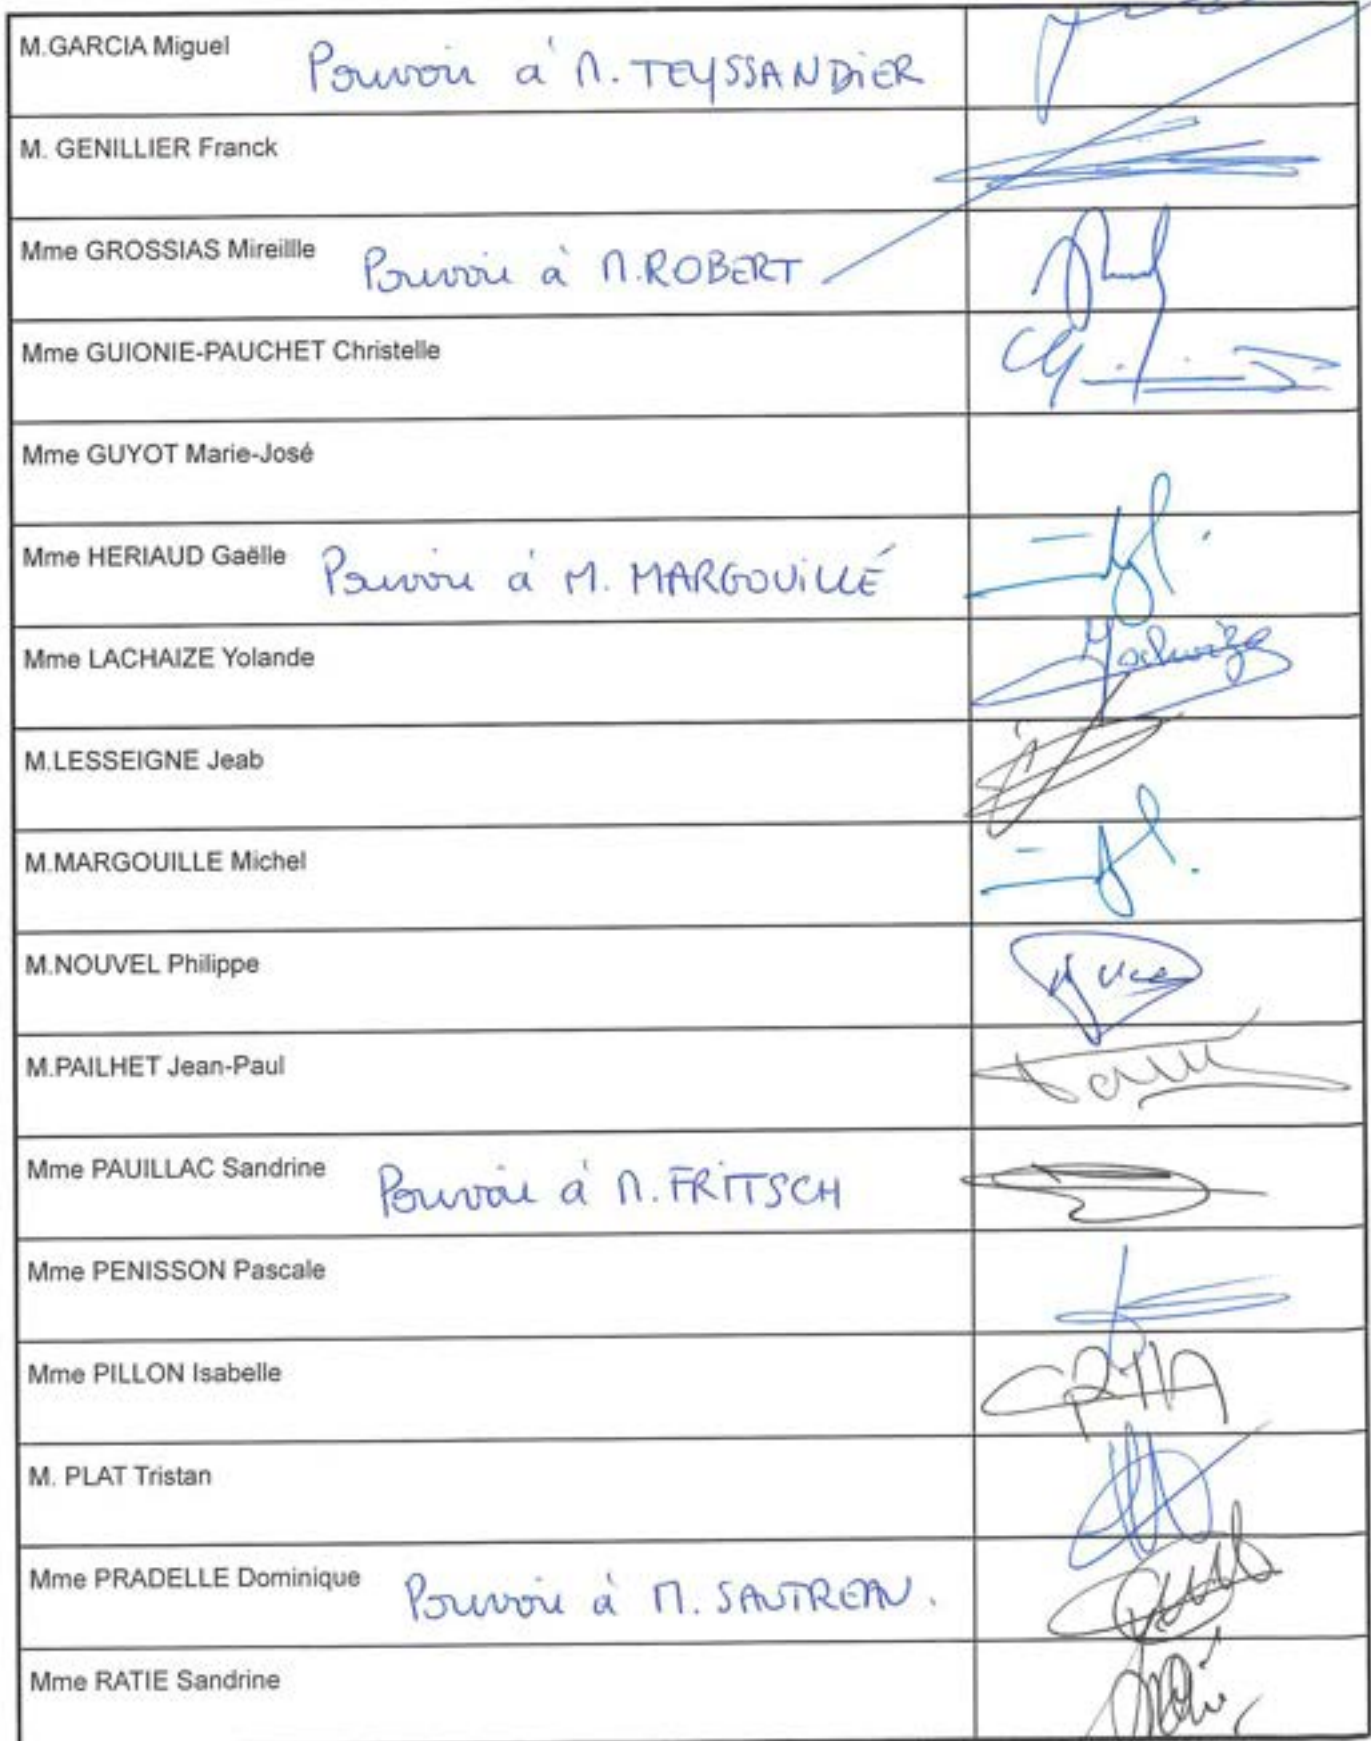 M.GARCIA Miguel Pouvoir à M. TEYSSANDIER
M. GENILLIER Franck
Mme GROSSIAS Mireillle Pouvoir à M.ROBERT
Mme GUIONIE-PAUCHET Christelle
Mme GUYOT Marie-José
Mme HERIAUD Gaëlle Pouvoir à M. MARGOUILLÉ
Mme LACHAIZE Yolande
M.LESSEIGNE Jeab
M.MARGOUILLE Michel
M.NOUVEL Philippe
M.PAILHET Jean-Paul
Mme PAUILLAC Sandrine Pouvoir à M. FRITSCH
Mme PENISSON Pascale
Mme PILLON Isabelle
M. PLAT Tristan
Mme PRADELLE Dominique Pouvoir à M. SAUTREAU.
Mme RATIE Sandrine